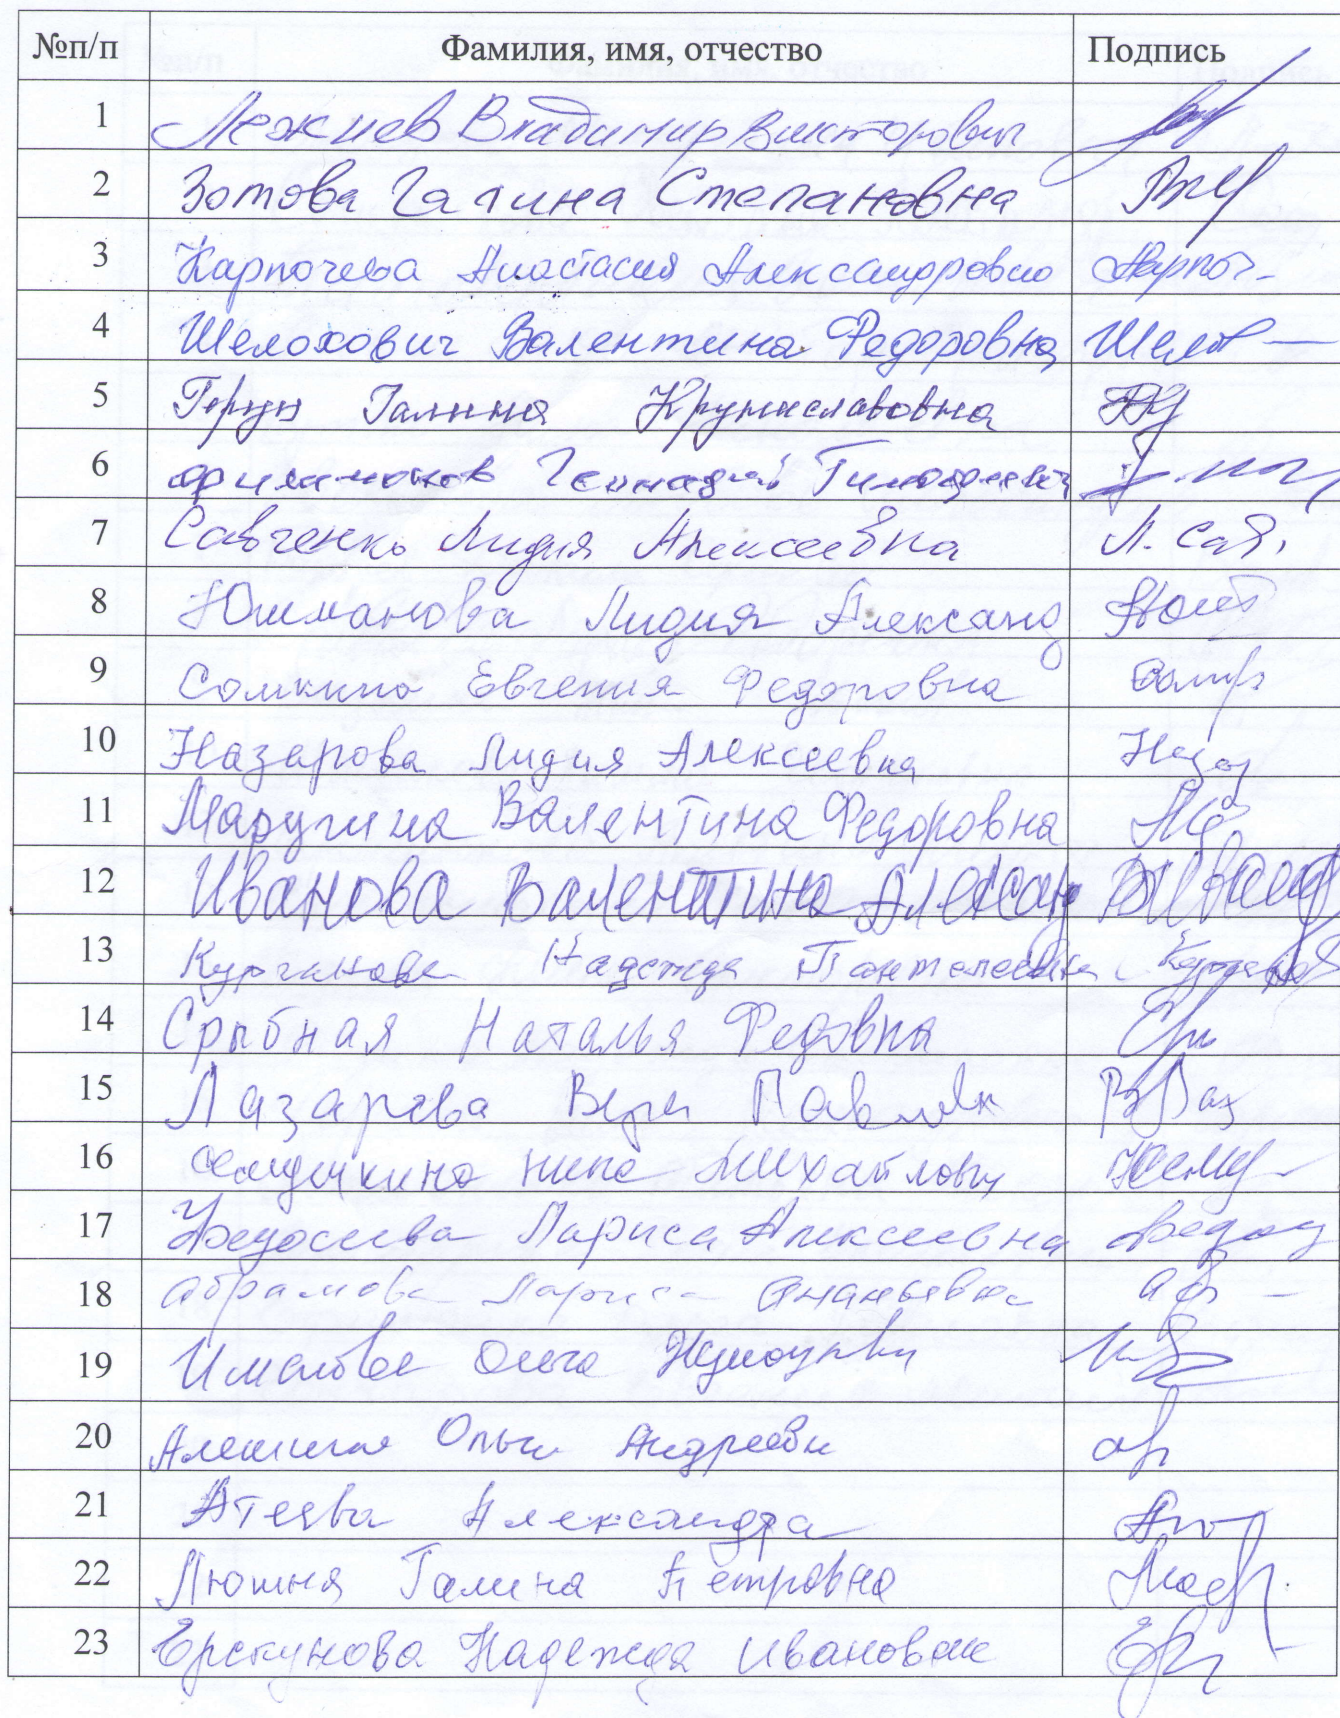 №п/п Фамилия, имя, отчество Подпись
1 Лежнев Владимир Викторович
2 Зотова Галина Степановна
3 Карпочева Анастасия Александровно Карпоч-
4 Шелохович Валентина Федоровна Шелох
5 Галина
6 Филимонов Геннадий Тимофеевич
7 Савченко Лидия Алексеевна Л. Сав.
8 Юшманова Лидия Александ
9 Сомкина Евгения Федоровна
10 Назарова Лидия Алексеевна Назар
11 Маругина Валентина Федоровна
12 Иванова Валентина Александ
13 Курганова Надежда Пантелеевна
14 Срыбная Наталья Федовна
15 Лазарева Вера Павловн
16 нина Михайловн
17 Федосеева Лариса Алексеевна Федос
18 Абрамова Лариса Ананьевна
19 Ольга
20 Алешина Ольга Андреевн
21 Атеева Александра
22 Люшня Галина Петровна
23 Надежда Ивановна